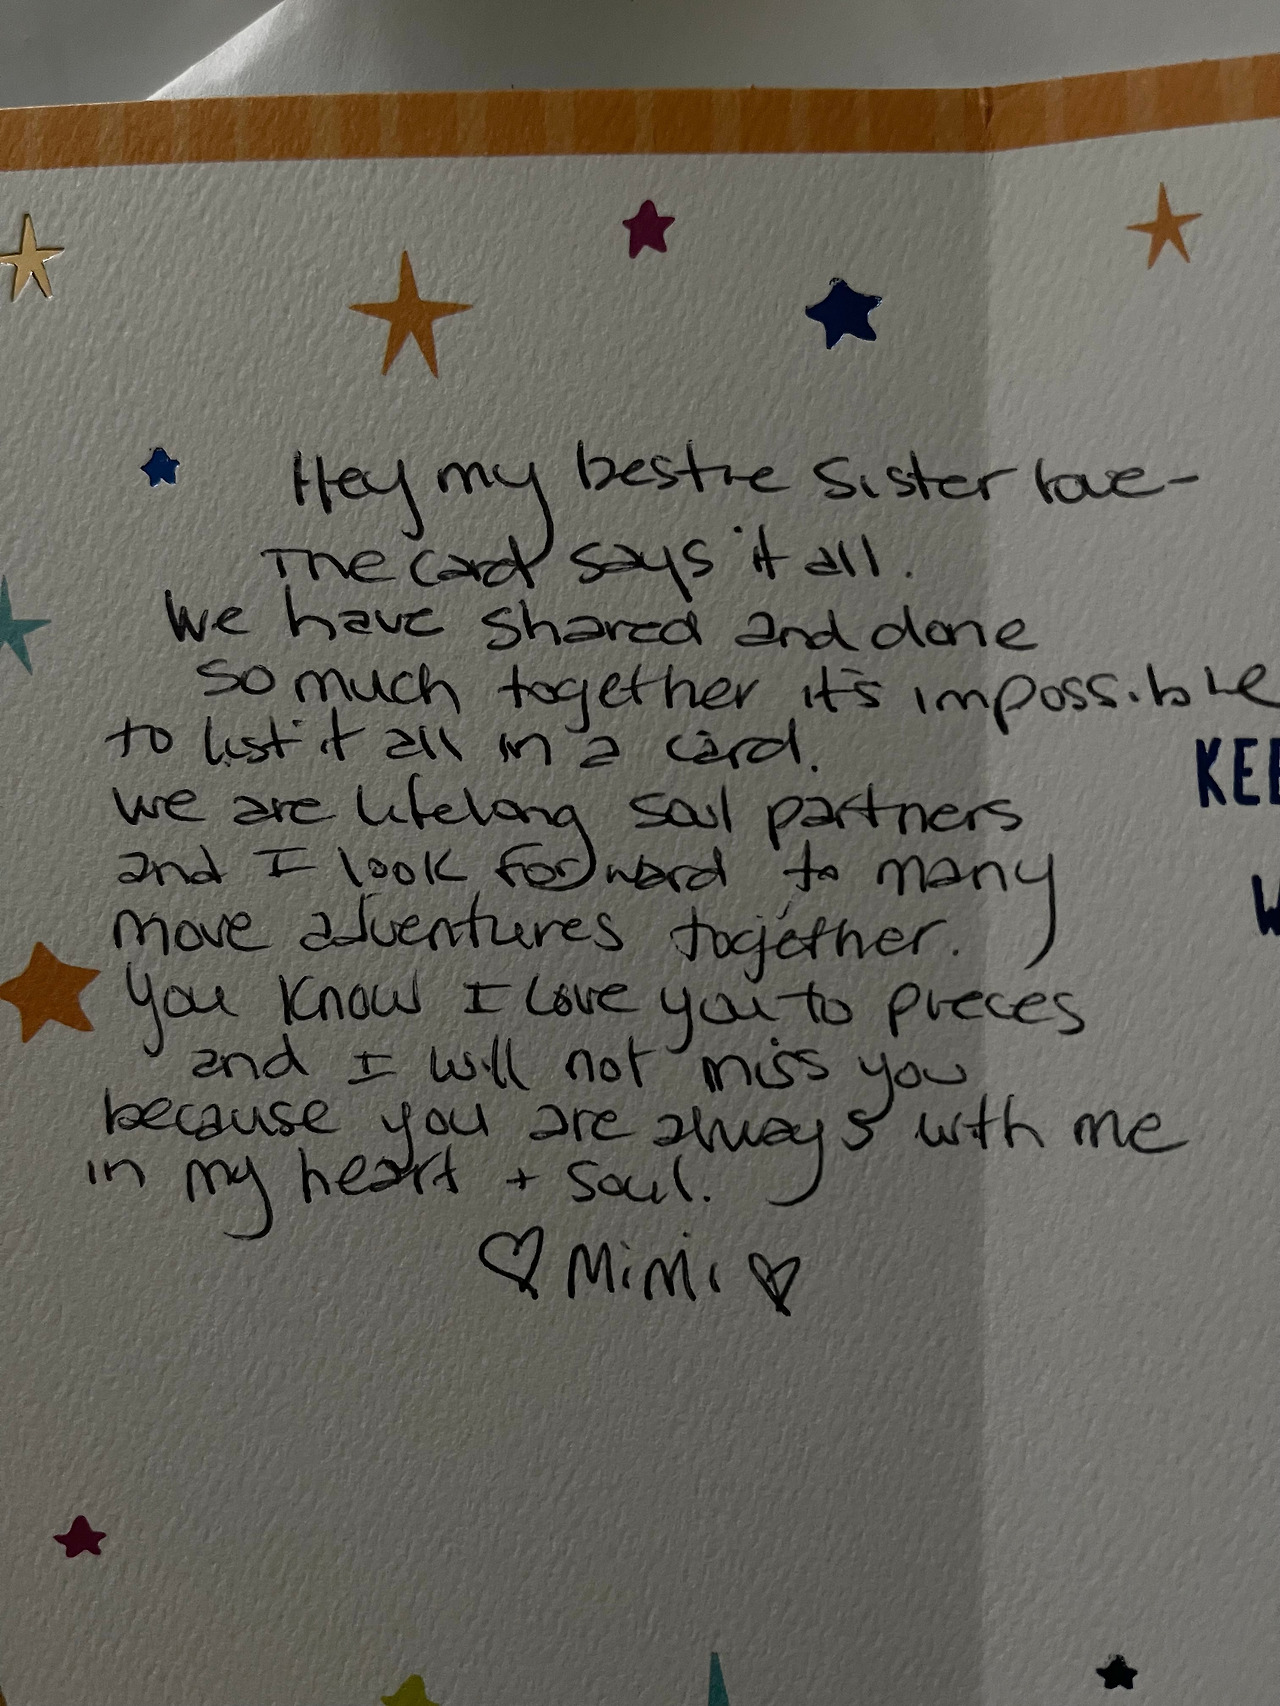 Hey my bestie Sister love-
The card says it all.
We have shared and done
so much together it's impossible
to list it all in a card.
KEE
We are lifelong soul partners
and I look forward to many
W
more adventures together.
You know I love you to pieces
and I will not miss you
because you are always with me
in my heart + soul.
♡ MiMi ♡